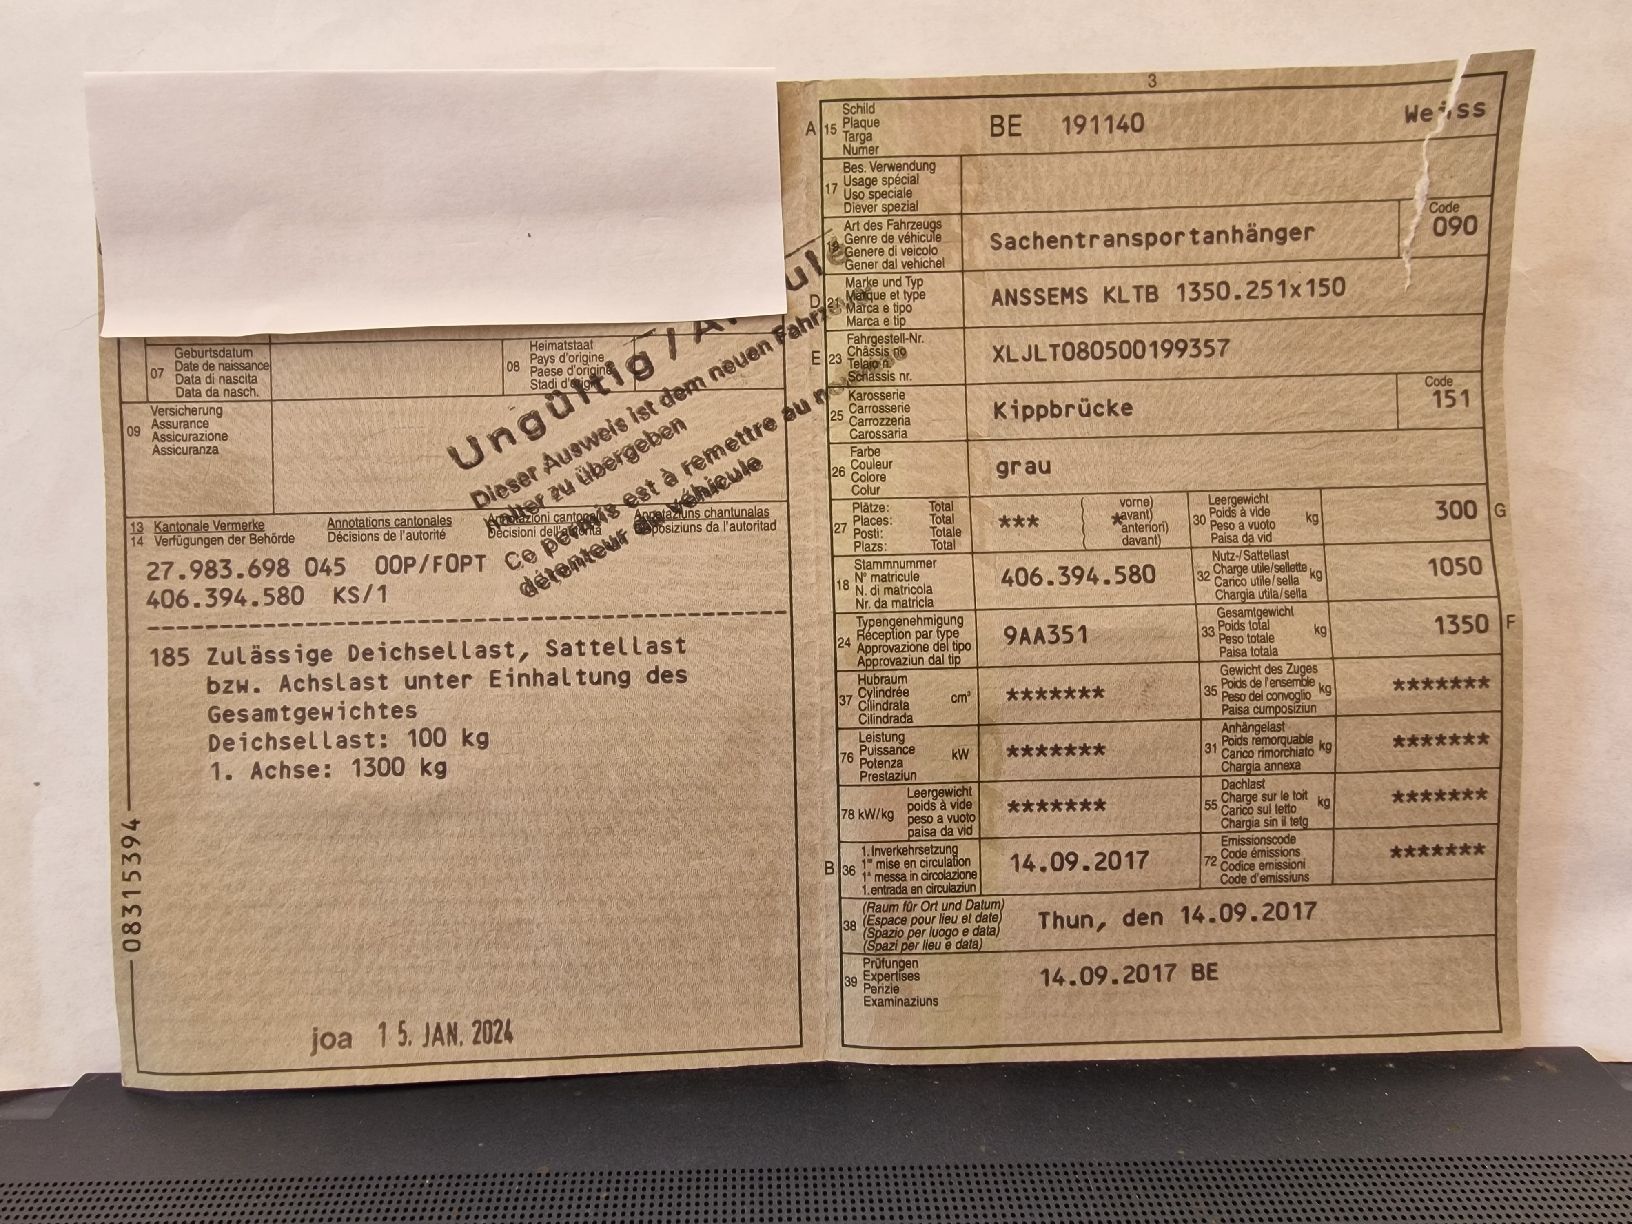 07 Geburtsdatum
Date de naissance
Data di nascita
Data da nasch.
08 Heimatstaat
Pays d'origine
Paese d'origine
Stadi d'origin
09 Versicherung
Assurance
Assicurazione
Assicuranza
Ungültig /
Dieser Ausweis ist dem neuen
Halter zu übergeben
Ce permis est à remettre au
détenteur du véhicule
13 Kantonale Vermerke Annotations cantonales Annotazioni cantonali Annotaziuns chantunalas
14 Verfügungen der Behörde Décisions de l'autorité Decisioni dell'autorità Disposiziuns da l'autoritad
27.983.698 045 OOP/FOPT
406.394.580 KS/1
185 Zulässige Deichsellast, Sattellast
bzw. Achslast unter Einhaltung des
Gesamtgewichtes
Deichsellast: 100 kg
1. Achse: 1300 kg
083115394
joa 15. JAN. 2024
3
A 15 Schild
Plaque
Targa
Numer
BE 191140 Weiss
17 Bes. Verwendung
Usage spécial
Uso speciale
Diever spezial
19 Art des Fahrzeugs
Genre de véhicule
Genere di veicolo
Gener dal vehichel
Sachentransportanhänger
Code
090
D 21 Marke und Typ
Marque et type
Marca e tipo
Marca e tip
ANSSEMS KLTB 1350.251x150
E 23 Fahrgestell-Nr.
Châssis no
Telaio n.
Schassis nr.
XLJLT080500199357
25 Karosserie
Carrosserie
Carrozzeria
Carossaria
Kippbrücke
Code
151
26 Farbe
Couleur
Colore
Colur
grau
27 Plätze: Total
Places: Total
Posti: Totale
Plazs: Total
***
( vorne)
( avant)
( anteriori)
davant)
*
30 Leergewicht
Poids à vide
Peso a vuoto
Paisa da vid
kg
300 G
18 Stammnummer
N° matricule
N. di matricola
Nr. da matricla
406.394.580
32 Nutz-/Sattellast
Charge utile/sellette
Carico utile/sella
Chargia utila/sella
kg
1050
24 Typengenehmigung
Réception par type
Approvazione del tipo
Approvaziun dal tip
9AA351
33 Gesamtgewicht
Poids total
Peso totale
Paisa totala
kg
1350 F
37 Hubraum
Cylindrée
Cilindrata
Cilindrada
cm³
*******
35 Gewicht des Zuges
Poids de l'ensemble
Peso del convoglio
Paisa cumposiziun
kg
*******
76 Leistung
Puissance
Potenza
Prestaziun
kW
*******
31 Anhängelast
Poids remorquable
Carico rimorchiato
Chargia annexa
kg
*******
78 kW/kg Leergewicht
poids à vide
peso a vuoto
paisa da vid
*******
55 Dachlast
Charge sur le toit
Carico sul tetto
Chargia sin il tetg
kg
*******
B 36 1.Inverkehrsetzung
1re mise en circulation
1a messa in circolazione
1.entrada en circulaziun
14.09.2017
72 Emissionscode
Code émissions
Codice emissioni
Code d'emissiuns
*******
38 (Raum für Ort und Datum)
(Espace pour lieu et date)
(Spazio per luogo e data)
(Spazi per lieu e data)
Thun, den 14.09.2017
39 Prüfungen
Expertises
Perizie
Examinaziuns
14.09.2017 BE